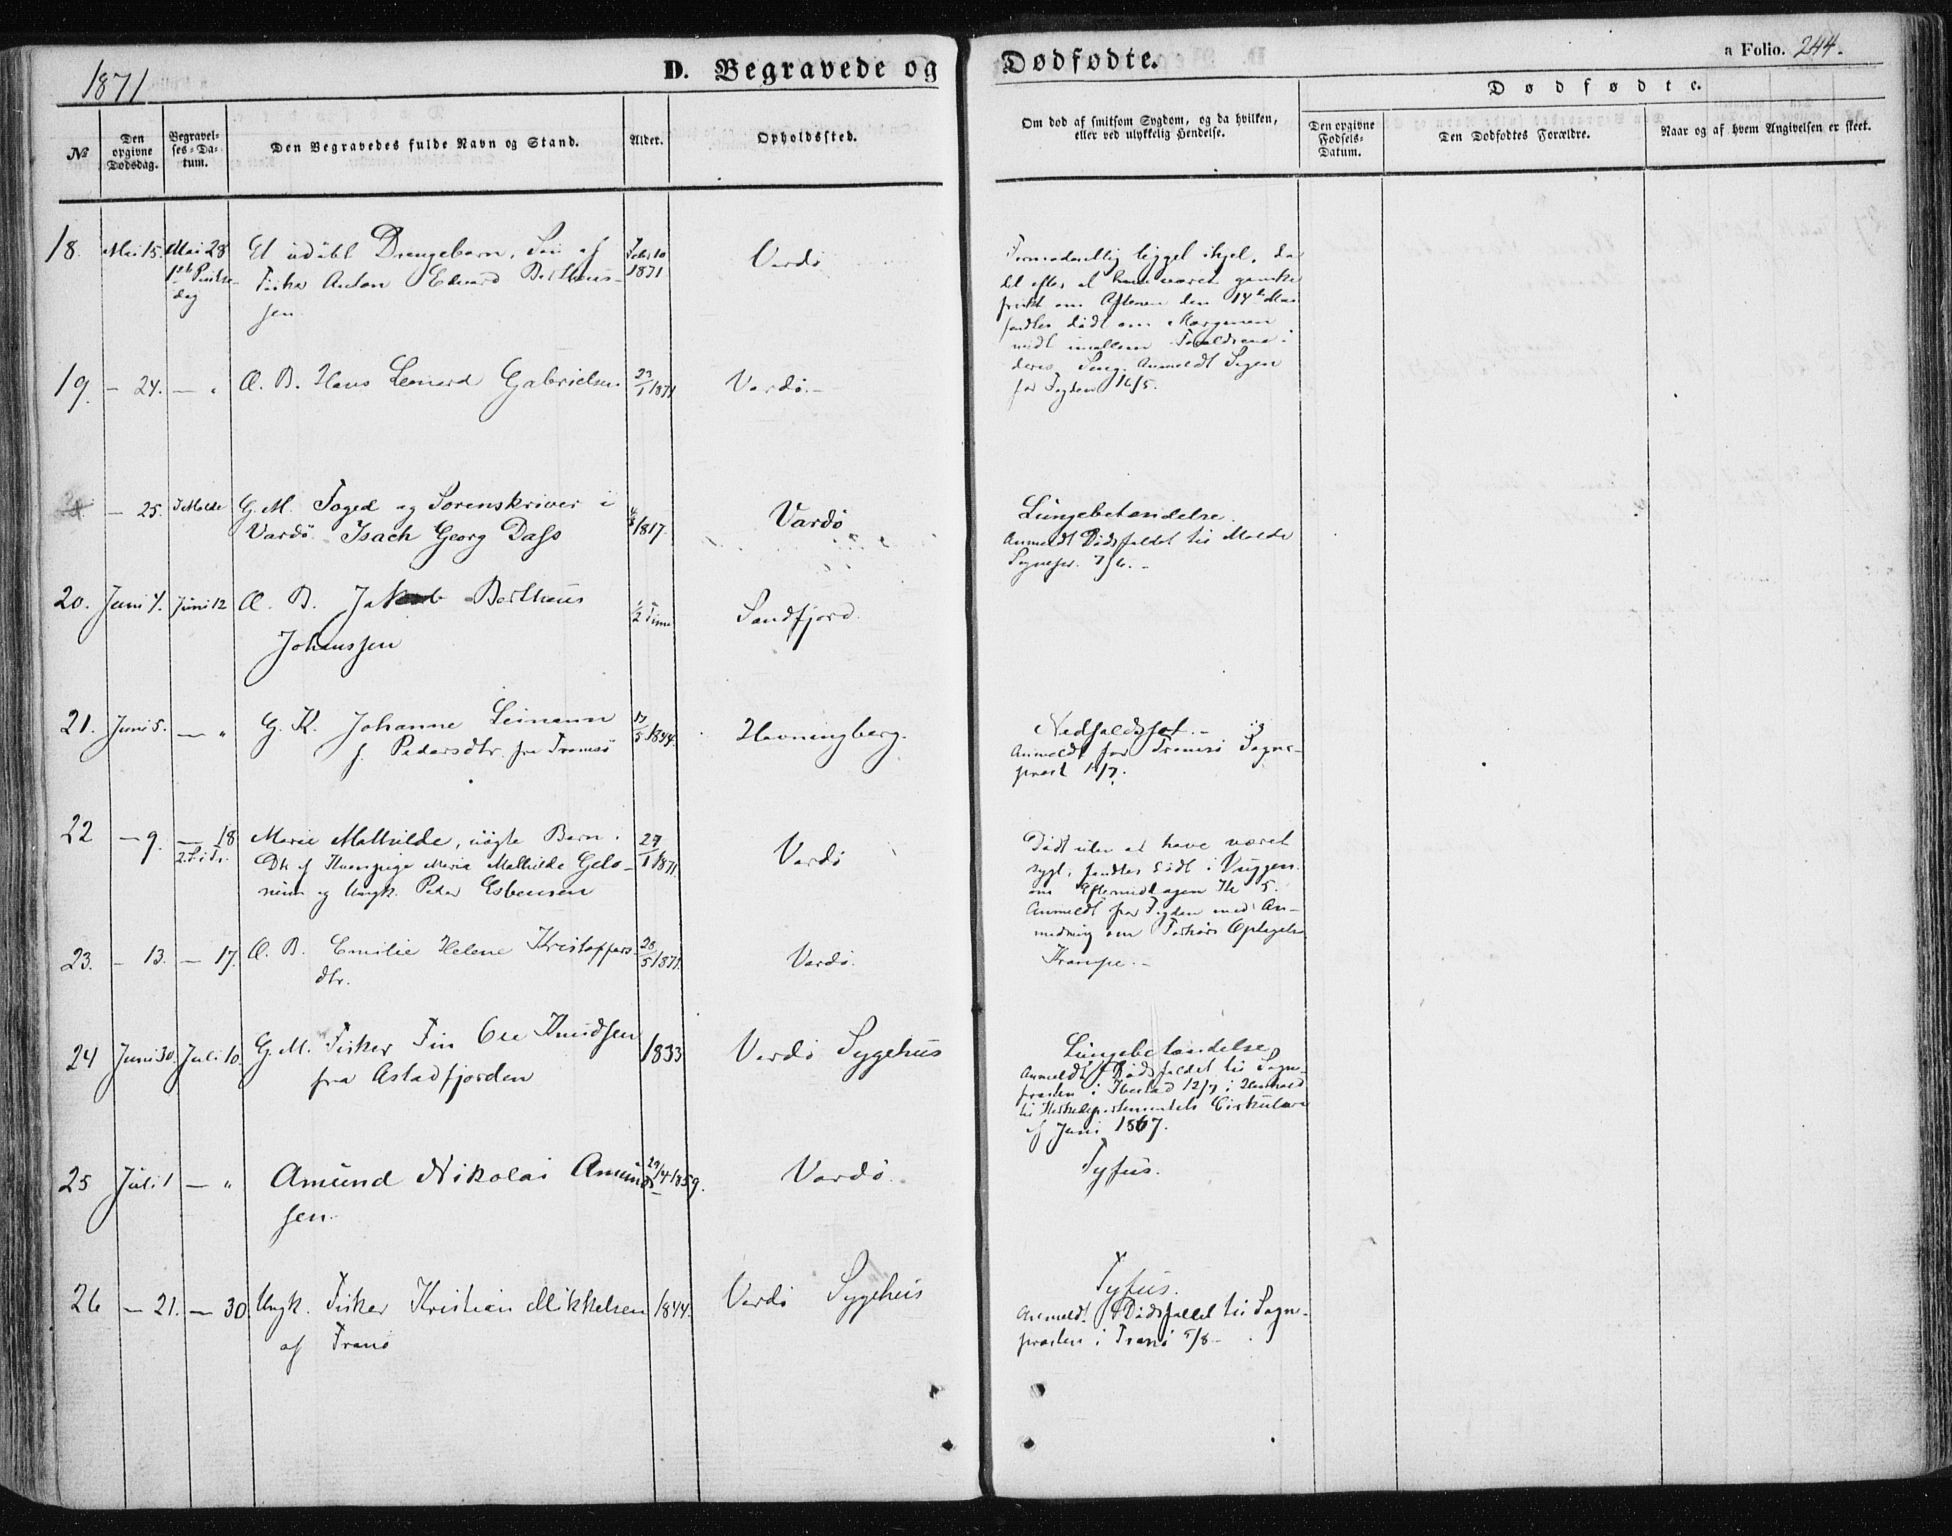 1871
D. Begravede og Dødfødte.
a Folio. 244.
Dødfødte.
No
Den opgivne Dødsdag.
Begravelses-Datum.
Den Begravedes fulde Navn og Stand.
Alder.
Opholdssted.
Om død af smitsom Sygdom, og da hvilken, eller ved ulykkelig Hendelse.
Den opgivne Fødsels-Datum.
Den Dødfødtes Forældre.
Naar og af hvem Angivelsen er skeet.
18. Mai 15. Mai 28 Et udøbt Drengebarn, Søn af
1ste Pintse-
dag
Fisker Anton Edvard Bertheus-
sen
1871
Vardø
Formodentlig ligget ihjel, da
det efter at have været ganske
friskt om Aftenen den 14de Mai
fandtes dødt om Morgenen
midt imellem Forældrene i
deres Seng. Anmeldt Sagen
for Fogden 16/5.
19. — 24. — „ Æ. B. Hans Leonard Gabrielsen 23/1 1871 Vardø.
— 25. I Molde G. M. Foged og Sorenskriver i
Vardø Isach Georg Dass
1817.
Vardø
Lungebetændelse.
Anmeldt Dødsfaldet til Molde
Sognepr. 7/6.
20. Juni 4. Juni 12 Æ. B. Jakob Bertheus
Johanssen
1/2 Time
Sandfjord.
21. Juni 5. — „ G. K. Johanne Leimann
f. Pedersdtr. fra Tromsø
17/5 1844.
Havningberg.
Nedfaldssot.
Anmeldt for Tromsø Sogne-
præst
22 — 9. — 18 Marie Mathilde, uægte Barn.
2. S. i Tr.
Dtr. af Kvinupige Maria Mathilde
og Ungk. Peder Esbensen
27/1 1871.
Vardø
Dødt uden at have været
sygt, fandtes dødt i Vuggen
om Eftermiddagen Kl 5.
Anmeldt for Fogden med An-
modning om Forhørs Optagelse
23. — 13. — 17. Æ. B. Emilie Helene Kristoffers-
dtr.
28/5 1871.
Vardø.
Krampe.
24 Juni 30. Juli 10. G. M. Fisker Fin Ole Knudsen
fra Astadfjorden
1833
Vardø Sygehus
Lungebetændelse
Anmeldt Dødsfaldet til Sogne-
præsten i Ibestad 12/7 i Henhold
til Kirkedepartementets Cirkulære
af Juni 1867.
25 Juli 1 — „ Amund Nikolai Amund-
sen.
29/4 1859.
Vardø.
Tyfus.
26 — 21. — 30. Ungk. Fisker Kristian Mikkelsen
af Tranø
1844.
Vardø Sygehus
Tyfus.
Anmeldt Dødsfaldet til Sogne-
præsten i Tranø 5/8